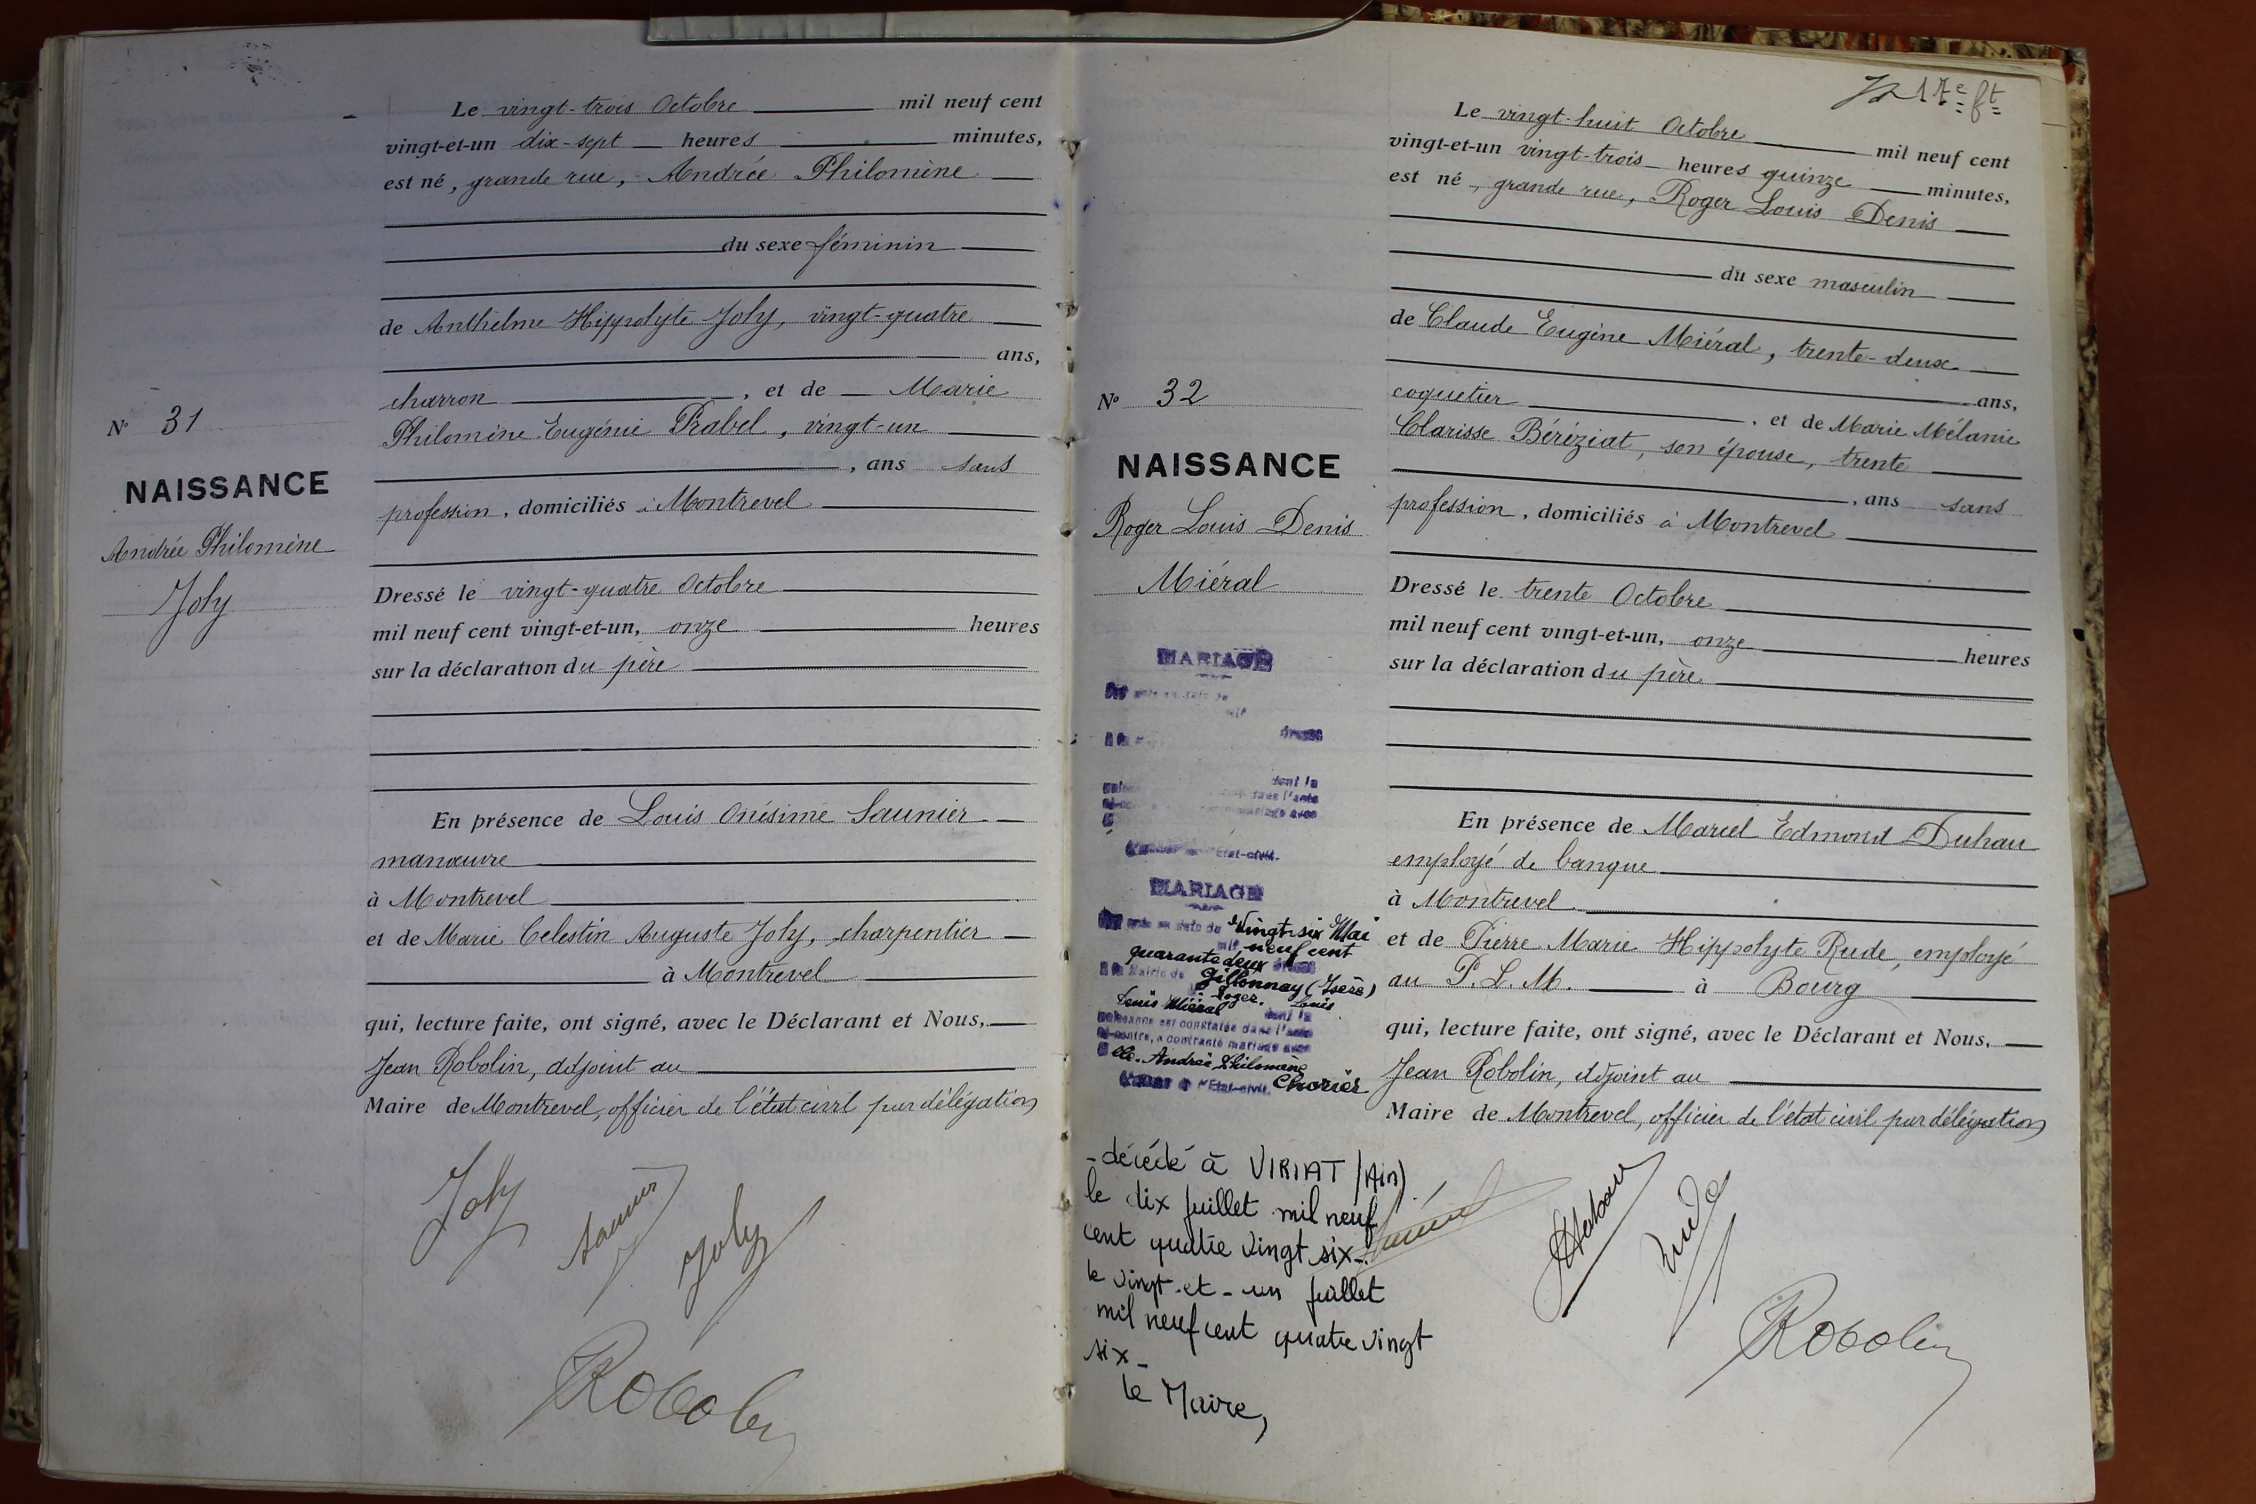 Le vingt-trois Octobre mil neuf cent
vingt-et-un dix-sept heures minutes,
est né, grande rue, Andrée Philomène
du sexe féminin
de Anthelme Hippolyte Joly, vingt-quatre
ans,
charron, et de Marie
Philomène Eugénie Prabel, vingt-un
, ans sans
profession, domiciliés à Montrevel
Dressé le vingt-quatre Octobre
mil neuf cent vingt-et-un, onze heures
sur la déclaration du père
En présence de Louis Onésime Saunier
manœuvre
à Montrevel
et de Marie Celestin Auguste Joly, charpentier
à Montrevel
qui, lecture faite, ont signé, avec le Déclarant et Nous,
Jean Robolin, adjoint au
Maire de Montrevel, officier de l'état civil par délégation
Nº 31
NAISSANCE
Andrée Philomène
Joly
Joly
Saunier
Joly
Robolin
17e ft
Le vingt-huit Octobre mil neuf cent
vingt-et-un vingt-trois heures quinze minutes,
est né, grande rue, Roger Louis Denis
du sexe masculin
de Claude Eugène Miéral, trente-deux
ans,
coquetier, et de Marie Mélanie
Clarisse Béréziat, son épouse, trente
, ans sans
profession, domiciliés à Montrevel
Dressé le trente Octobre
mil neuf cent vingt-et-un, onze heures
sur la déclaration du père
En présence de Marcel Edmond Duhau
employé de banque
à Montrevel
et de Pierre Marie Hippolyte Rude, employé
au P. L. M. à Bourg
qui, lecture faite, ont signé, avec le Déclarant et Nous,
Jean Robolin, adjoint au
Maire de Montrevel, officier de l'état civil par délégation
Nº 32
NAISSANCE
Roger Louis Denis
Miéral
MARIAGE
mil
dressé
dont la
l'acte
mariage avec
l'État-civil.
MARIAGE
Par acte en date du Vingt-six Mai
mil neuf cent
quarante deux dressé
à la Mairie de Gillonnay (Isère)
Roger Louis
Denis Miéral dont la
naissance est constatée dans l'acte
ci-contre, a contracté mariage avec
Andrée Philomène
l'État-civil. Chorier
- décédé à VIRIAT (Ain)
le dix juillet mil neuf
cent quatre vingt six -
le vingt-et-un juillet
mil neuf cent quatre vingt
six -
le Maire,
Miéral
Duhau
Rude
Robolin